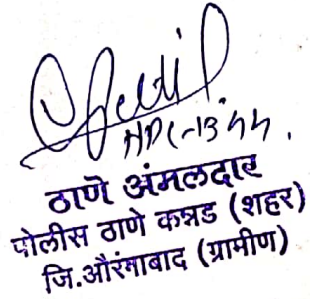 HPC-1344.
ठाणे अंमलदार
पोलीस ठाणे कन्नड (शहर)
जि.औरंगाबाद (ग्रामीण)